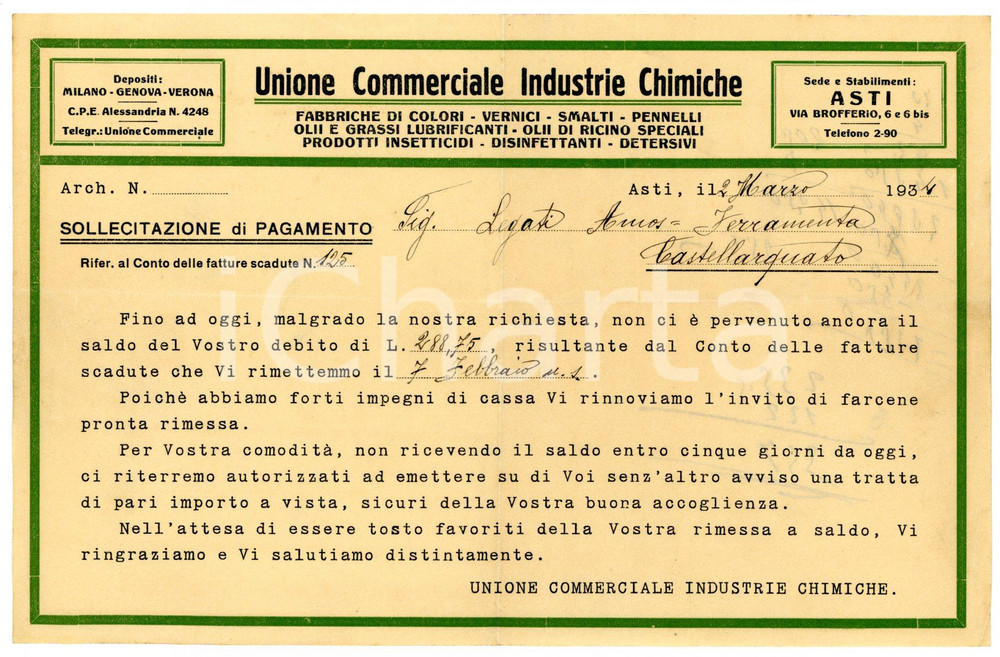 Depositi:
MILANO - GENOVA - VERONA
C.P.E. Alessandria N. 4248
Telegr.: Unione Commerciale
Unione Commerciale Industrie Chimiche
FABBRICHE DI COLORI - VERNICI - SMALTI - PENNELLI
OLII E GRASSI LUBRIFICANTI - OLII DI RICINO SPECIALI
PRODOTTI INSETTICIDI - DISINFETTANTI - DETERSIVI
Sede e Stabilimenti:
ASTI
VIA BROFFERIO, 6 e 6 bis
Telefono 2-90
Arch. N.
Asti, il 2 Marzo 1934
SOLLECITAZIONE di PAGAMENTO
Sig. Legati Amos = Ferramenta
Castellarquato
Rifer. al Conto delle fatture scadute N. 125
iCharta
Fino ad oggi, malgrado la nostra richiesta, non ci è pervenuto ancora il
saldo del Vostro debito di L. 288,75, risultante dal Conto delle fatture
scadute che Vi rimettemmo il 7 Febbraio u.s.
Poichè abbiamo forti impegni di cassa Vi rinnoviamo l'invito di farcene
pronta rimessa.
Per Vostra comodità, non ricevendo il saldo entro cinque giorni da oggi,
ci riterremo autorizzati ad emettere su di Voi senz'altro avviso una tratta
di pari importo a vista, sicuri della Vostra buona accoglienza.
Nell'attesa di essere tosto favoriti della Vostra rimessa a saldo, Vi
ringraziamo e Vi salutiamo distintamente.
UNIONE COMMERCIALE INDUSTRIE CHIMICHE.